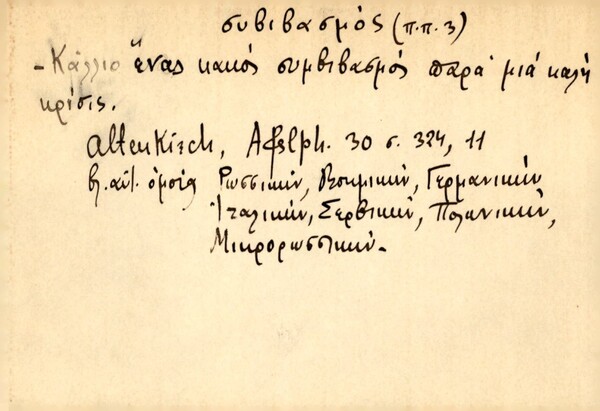 συβιβασμός (π.π. 3)
- Κάλλιο ἕνας κακός συμβιβασμός παρά μιά καλή
κρίσις.
Altenkirch, Afslph. 30 σ. 324, 11
βλ. αὐτ. ὁμοία Ρωσσικήν, Βοημικήν, Γερμανικήν
Ἰταλικήν, Σερβικήν, Πολωνικήν,
Μικρορωσσικήν.